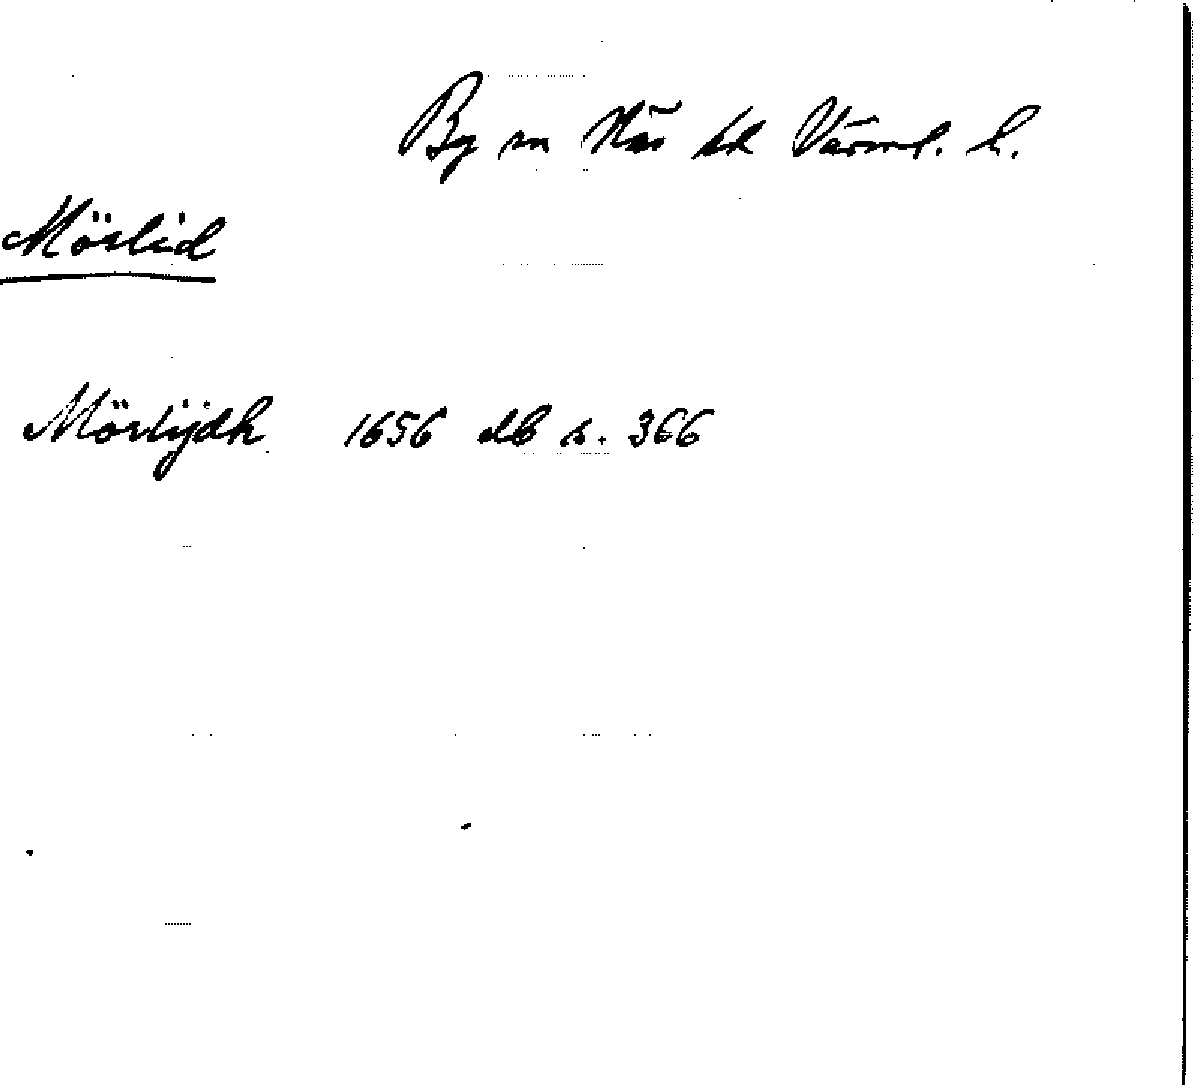 By sn Näs hd Värml. l.
Mörlid
Mörlijdh 1656 db s. 366